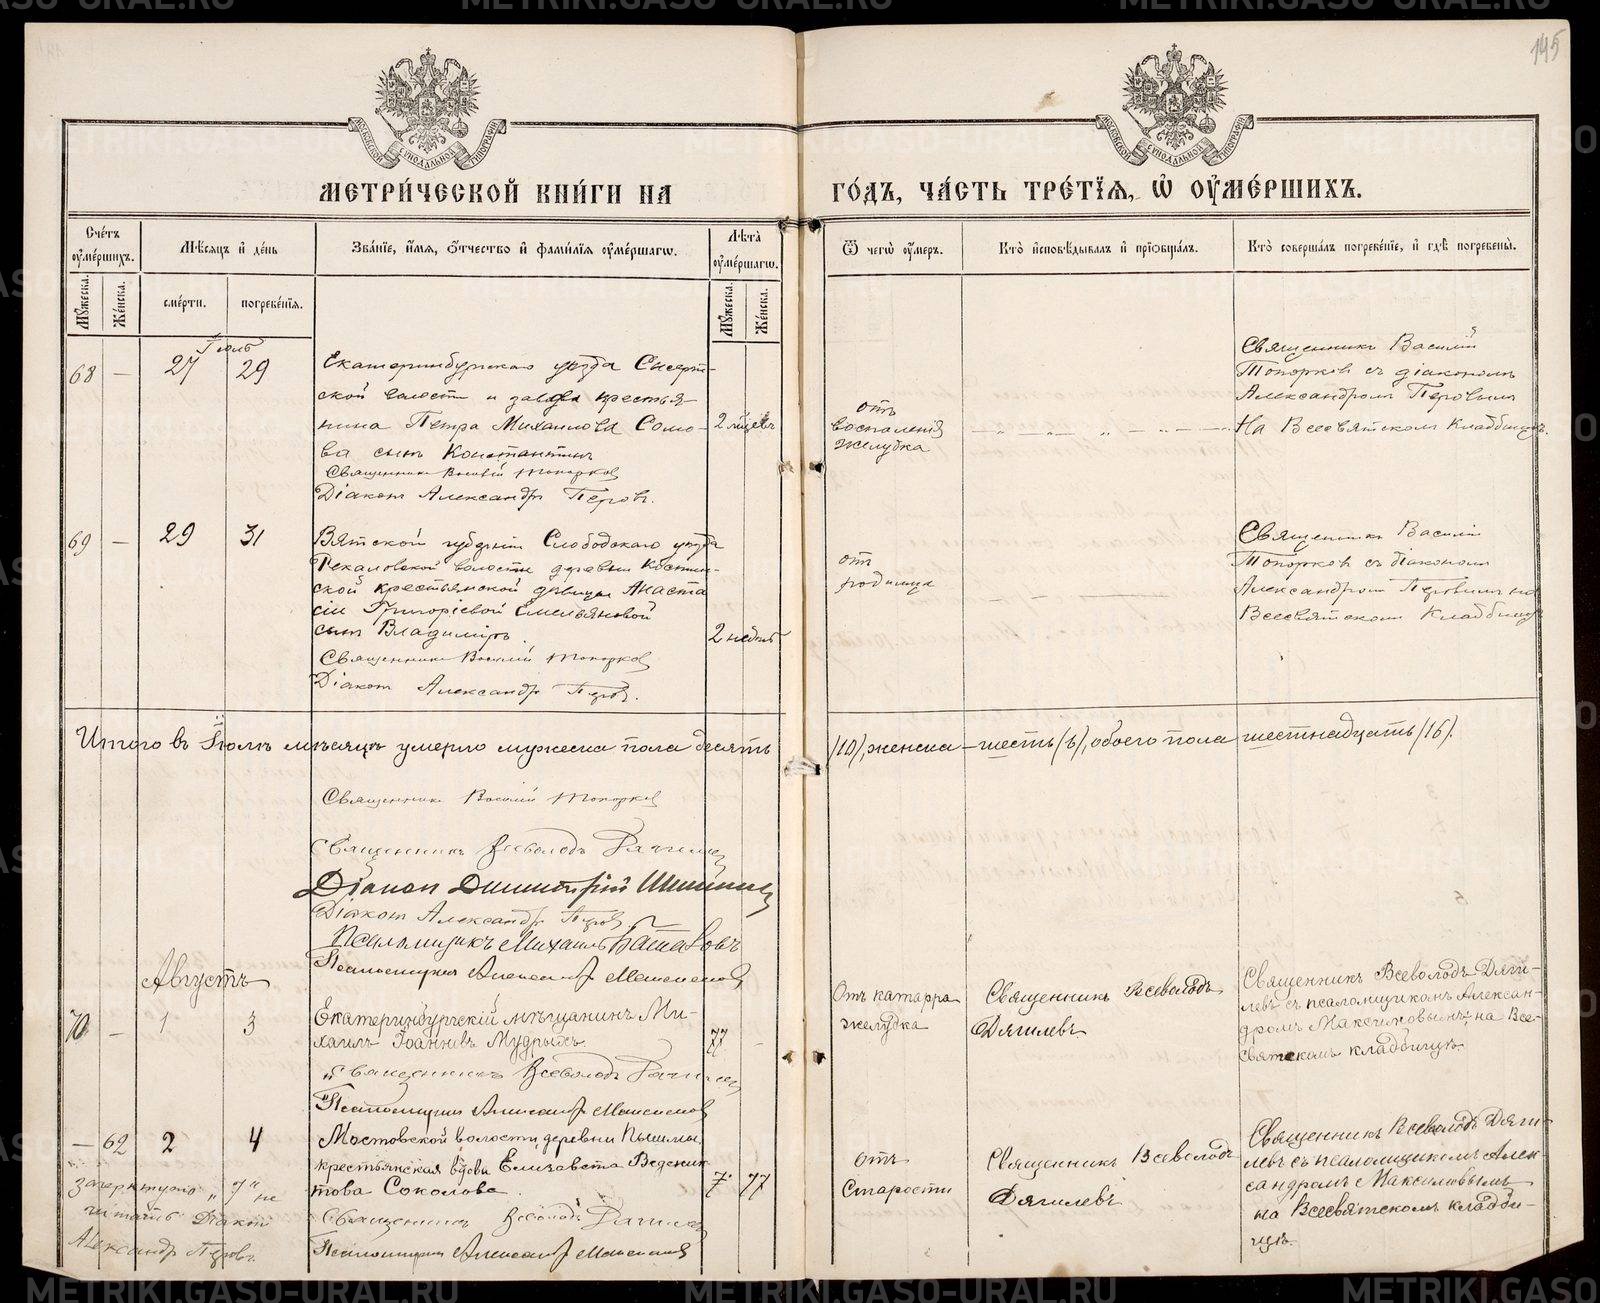 145
МЕТРИ́ЧЕСКОЙ КНИ́ГИ НА
ГО́ДЪ, ЧА́СТЬ ТРЕ́ТЇЯ, Ѡ҆ ОУ҆МЕ́РШИХЪ.
Сче́тъ оу҆ме́ршихъ.
Мѣ́сяцъ и҆ де́нь
Зва́нїе, и҆́мя, ѻ҆́тчество и҆ фами́лїя оу҆ме́ршагѡ.
Лѣ́та оу҆ме́ршагѡ.
Ѿ чегѡ̀ оу҆́меръ.
Кто̀ и҆сповѣ́дывалъ и҆ прїѡбща́лъ.
Кто̀ соверша́лъ погребе́нїе, и҆ гдѣ̀ погребены̀.
Мꙋ́жеска.
Же́нска.
сме́рти.
погребе́нїя.
Мꙋ́жеска.
Же́нска.
Іюль
68 — 27 29
Екатеринбургскаго уѣзда Сысерт-
ской волости и завода крестья-
нина Петра Михаилова Сомо-
ва сынъ Константинъ
2 мѣсяцъ
Священникъ Василій Топорковъ
Діаконъ Александръ Перовъ.
отъ
воспаленія
желудка
Священникъ Василій
Топорковъ съ діакономъ
Александромъ Перовымъ
На Всесвятскомъ Кладбищѣ.
69 — 29 31
Вятской губерніи Слободскаго уѣзда
волости деревни
ской крестьянской дѣвицы Анаста
сіи Григоріевой Емельяновой
сынъ Владиміръ.
2 недѣль
Священникъ Василій Топорковъ
Діаконъ Александръ Перовъ.
отъ
родимца
Священникъ Василій
Топорковъ съ діакономъ
Александромъ Перовымъ на
Всесвятскомъ Кладбищѣ
Итого въ Іюлѣ мѣсяцѣ умерло мужеска пола десять
/10/, женска – шесть /6/, обоего пола шестнадцать /16/.
Священникъ Василій Топорковъ
Священникъ Всеволодъ Дягилевъ
Діаконъ Димитрій
Діаконъ Александръ Перовъ
Псаломщикъ Михаилъ Баташовъ
Псаломщикъ Александръ Максимовъ
Августъ
70 — 1 3
Екатеринбургскій мѣщанинъ Ми-
хаилъ Іоанновъ Мудрыхъ
77 —
Священникъ Всеволодъ Дягилевъ
Псаломщикъ Александръ Максимовъ
Отъ катарра
желудка
Священникъ Всеволодъ
Дягилевъ.
Священникъ Всеволодъ Дяги-
левъ съ псаломщикомъ Алексан-
дромъ Максимовымъ на Все-
святскомъ кладбищѣ.
— 62 2 4
Мостовской волости деревни Пышмы,
крестьянская вдова Елизавета Веденик-
това Соколова.
7 77
Священникъ Всеволодъ Дягилевъ
Псаломщикъ Александръ Максимовъ
зачеркнутую „7“ не
читать Діаконъ
Александръ Перовъ.
отъ
Старости
Священникъ Всеволодъ
Дягилевъ
Священникъ Всеволодъ Дяги-
левъ съ псаломщикомъ Алек-
сандромъ Максимовымъ
на Всесвятскомъ кладби-
щѣ.
METRIKI.GASO-URAL.RU